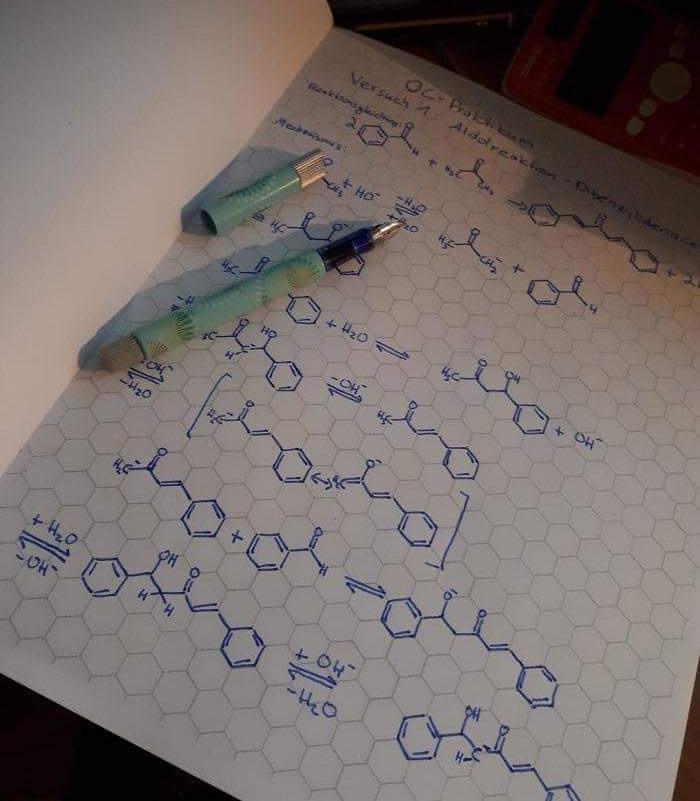 OC-Praktikum
Versuch 1: Aldolreaktion - Dibenzylidenace
Reaktionsgleichung:
2 O H + H₃C O CH₃ → O + 2
Mechanismus:
O CH₃ + HO⁻ -H₂O +H₂O H₃C O CH₂⁻ + O H
⇌ H₃C O O⁻
H₃C + H₂O ⇌ H₃C O OH + OH⁻
H₃C O HO H -OH⁻ ⇌ H₃C O
-OH⁻ -H₂O ⇌ [ H₂C⁻ O ↔ H₂C O⁻ ]
H₂C⁻ O + O H ⇌ O⁻ O
+ H₂O - OH⁻ ⇌ OH O H H
+ OH⁻ - H₂O ⇌ OH O H-C⁻